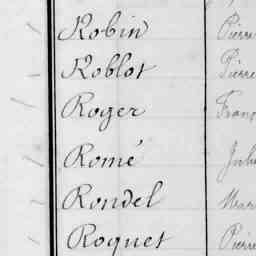 Robin Pierre
Roblot Pierre
Roger
Romé
Rondel
Roquet Pierre